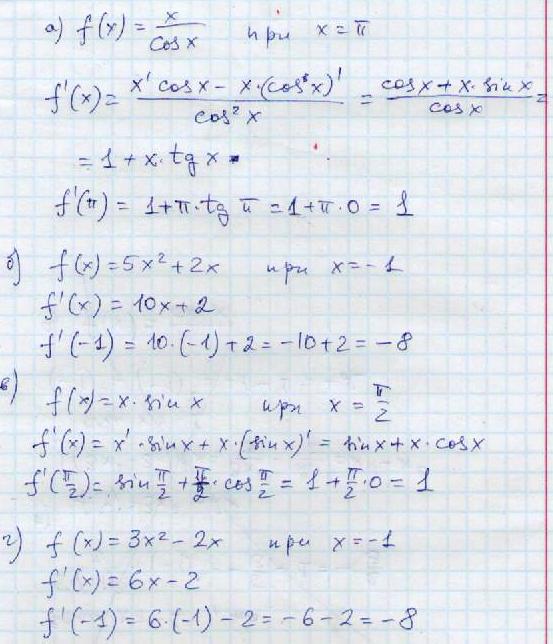 а) f(x) = x/cos x при x = π
f'(x) = (x' cos x − x·(cos x)')/cos² x = (cos x + x·sin x)/cos x =
= 1 + x·tg x
f'(π) = 1+π·tg π = 1+π·0 = 1
б) f(x) = 5x² + 2x при x = −1
f'(x) = 10x + 2
f'(−1) = 10·(−1) + 2 = −10+2 = −8
в) f(x) = x·sin x при x = π/2
f'(x) = x'·sin x + x·(sin x)' = sin x + x·cos x
f'(π/2) = sin π/2 + π/2·cos π/2 = 1 + π/2·0 = 1
г) f(x) = 3x² − 2x при x = −1
f'(x) = 6x − 2
f'(−1) = 6·(−1) − 2 = −6 − 2 = −8